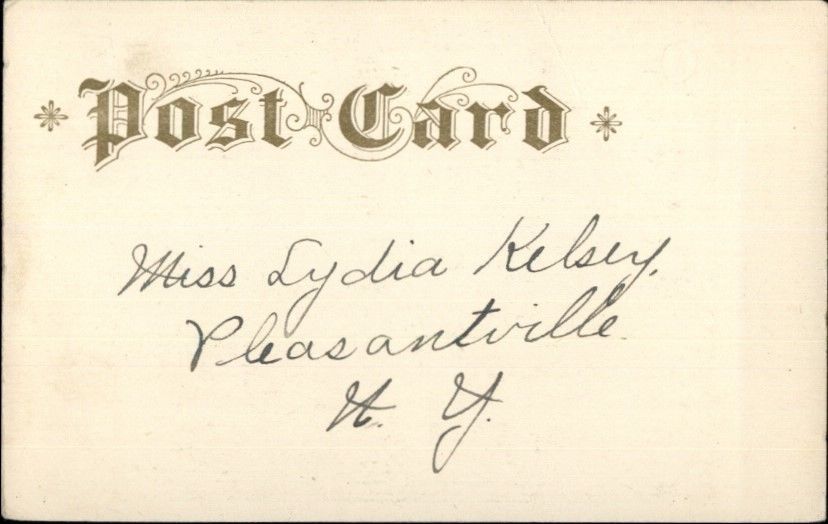 Post Card
Miss Lydia Kelsey.
Pleasantville
N. Y.